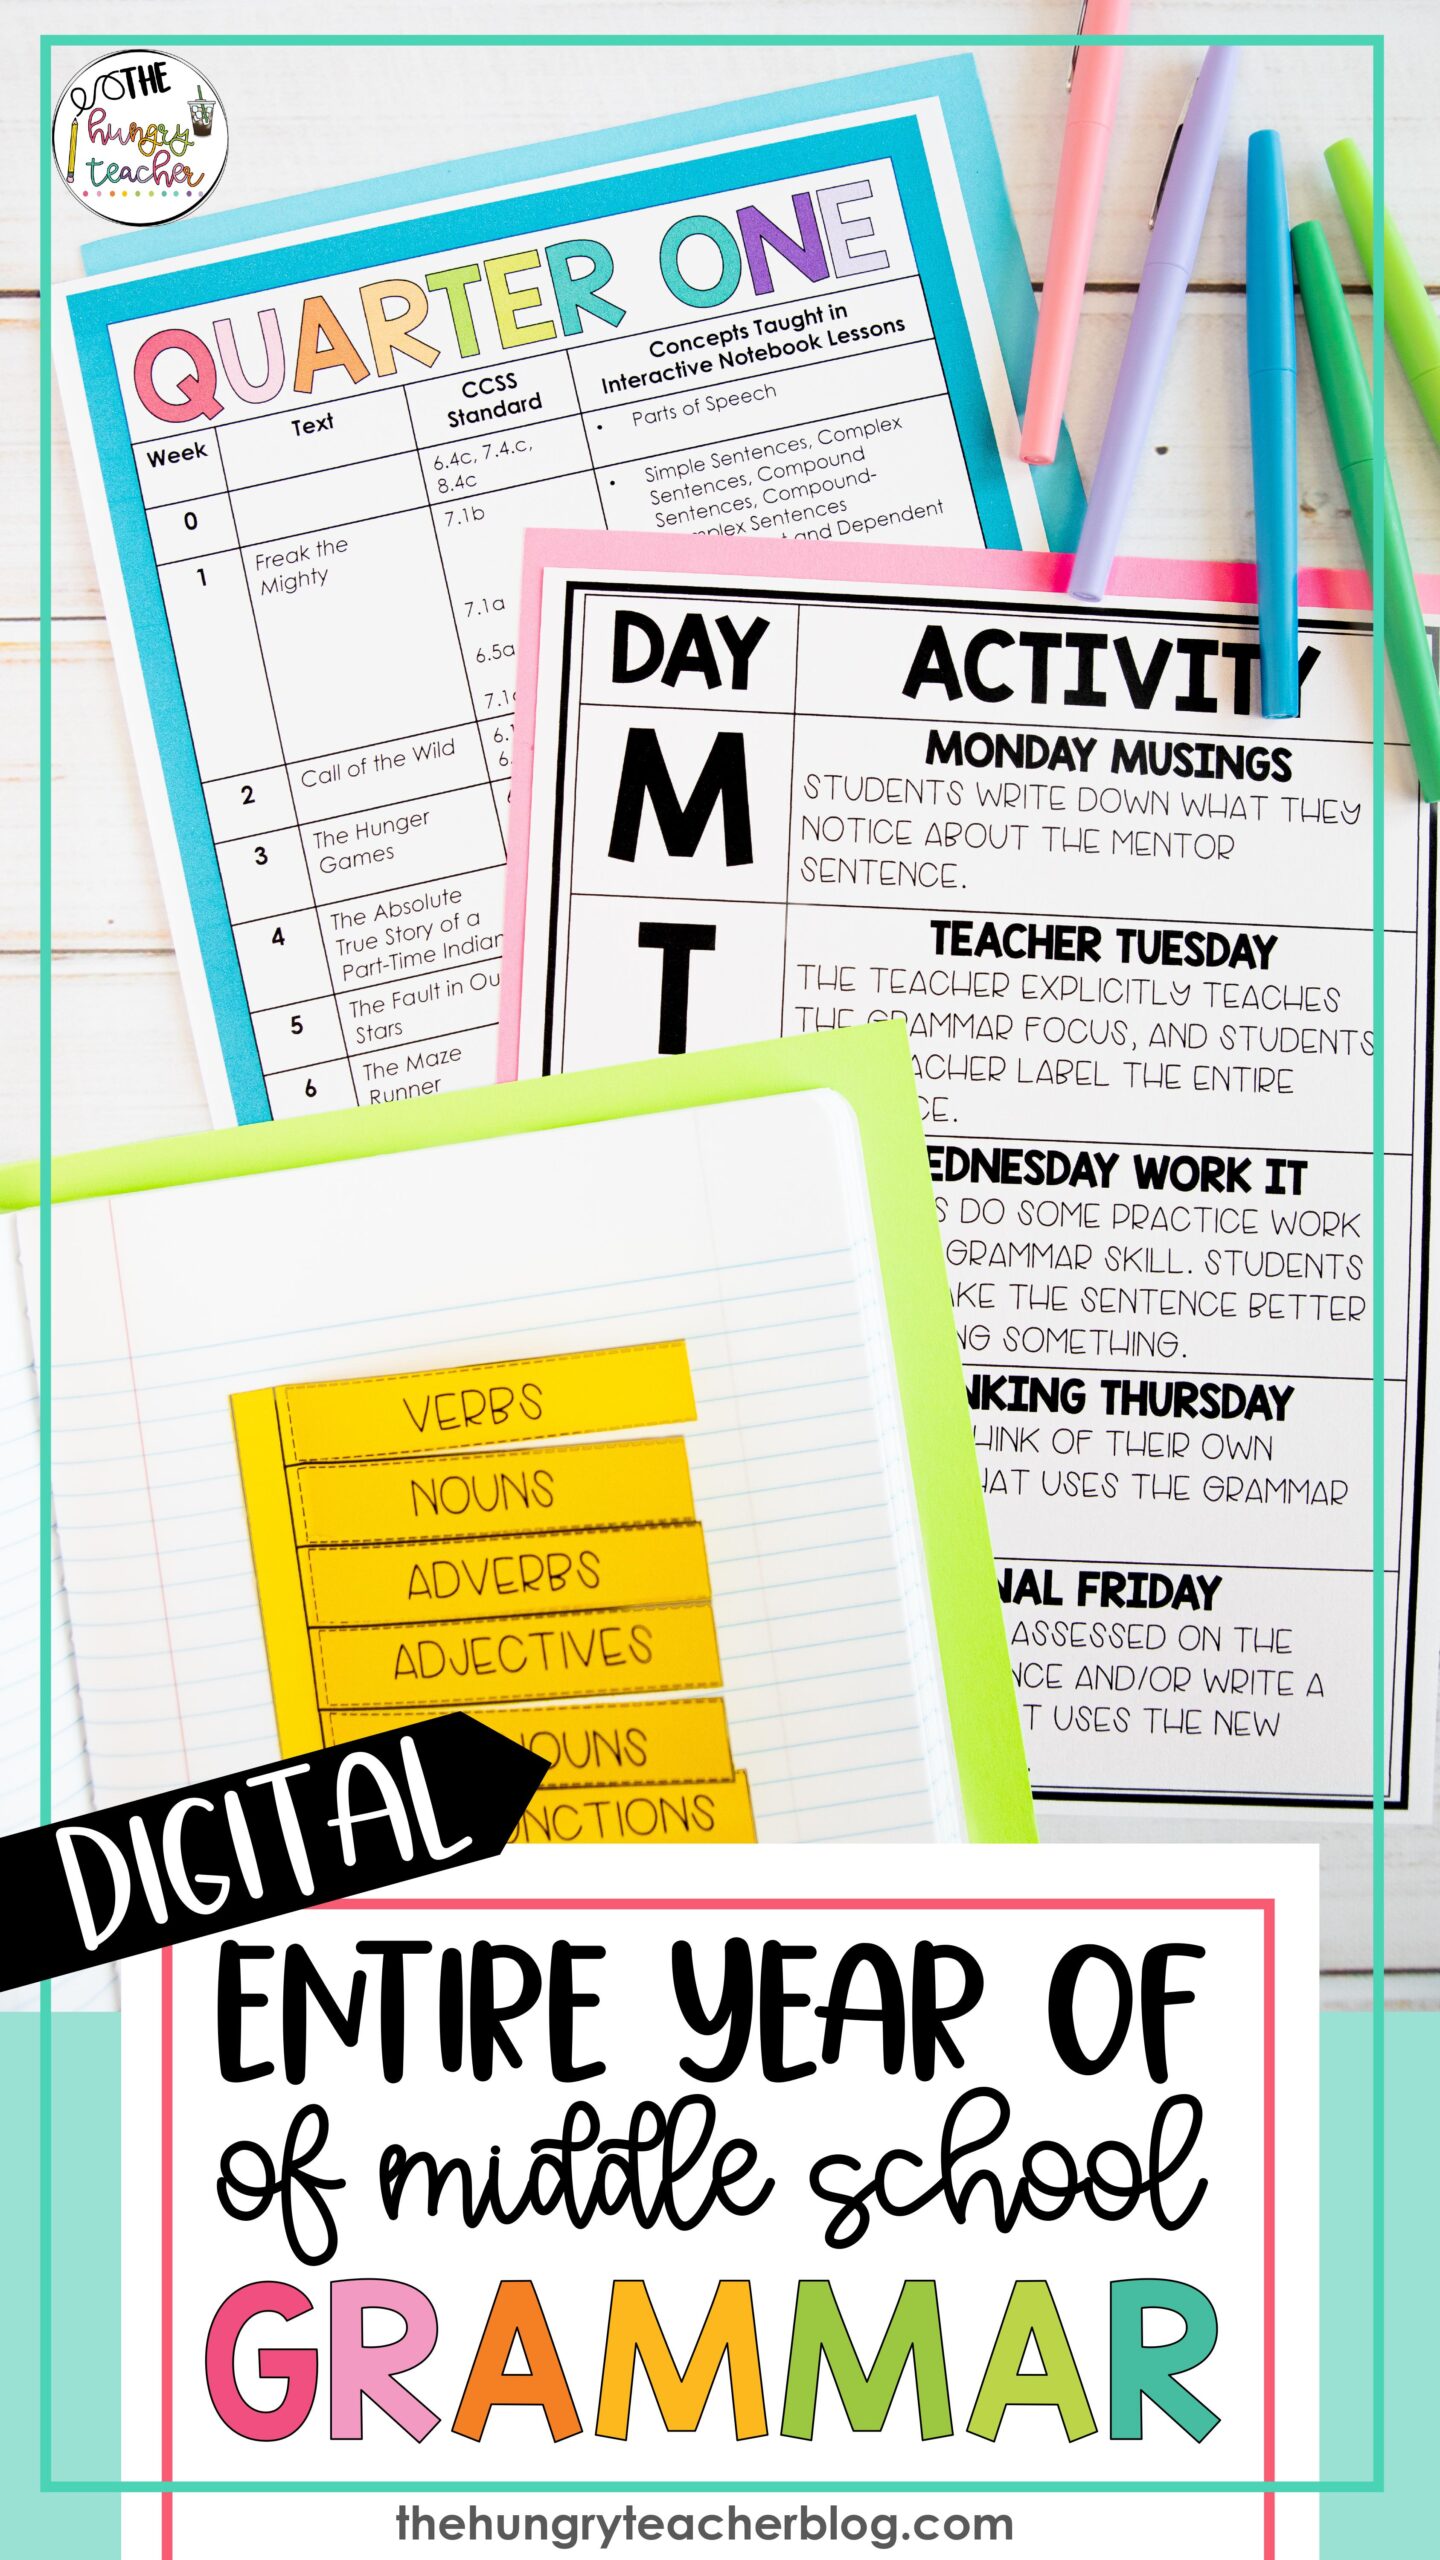 THE
hungry
teacher
QUARTER ONE
Week
Text
CCSS
Standard
Concepts Taught in
Interactive Notebook Lessons
0
6.4c, 7.4.c,
8.4c
• Parts of Speech
1
Freak the
Mighty
7.1b
7.1a
6.5a
• Simple Sentences, Complex
Sentences, Compound
Sentences, Compound-
Sentences
and Dependent
2
Call of the Wild
3
The Hunger
Games
4
The Absolute
True Story of a
Part-Time Indian
5
The Fault in
Stars
6
The Maze
Runner
DAY
ACTIVITY
M
MONDAY MUSINGS
STUDENTS WRITE DOWN WHAT THEY
NOTICE ABOUT THE MENTOR
SENTENCE.
T
TEACHER TUESDAY
THE TEACHER EXPLICITLY TEACHES
THE GRAMMAR FOCUS, AND STUDENTS
LABEL THE ENTIRE
WORK IT
DO SOME PRACTICE WORK
GRAMMAR SKILL. STUDENTS
THE SENTENCE BETTER
SOMETHING.
THURSDAY
OF THEIR OWN
USES THE GRAMMAR
FRIDAY
ASSESSED ON THE
AND/OR WRITE A
USES THE NEW
VERBS
NOUNS
ADVERBS
ADJECTIVES
DIGITAL
ENTIRE YEAR OF
of middle school
GRAMMAR
thehungryteacherblog.com